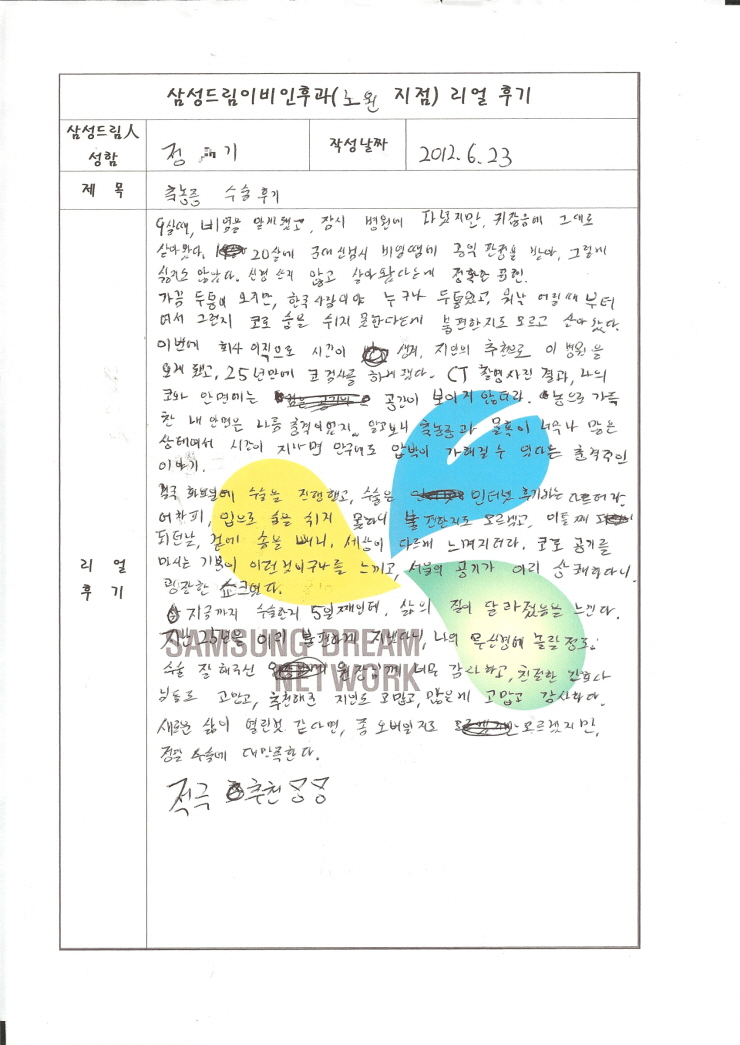 삼성드림이비인후과(노원 지점) 리얼 후기
삼성드림人 성함
정 기
작성날짜
2012.6.23
제 목
축농증 수술 후기
리 얼 후 기
9살때, 비염을 알게됐고, 잠시 병원에 다녔지만, 귀찮음에 그대로
살아왔다. 20살에 군대신검시 비염땜에 공익 판정을 받아, 그렇게
싫지도 않았다. 신경 쓰지 않고 살아왔다는게 정확한 표현.
가끔 두통이 오지만, 한국사람이야 누구나 두통있고, 워낙 어릴때부터
여서 그런지 코로 숨을 쉬지 못한다는게 불편한지도 모르고 살아 왔다.
이번에 회사 이직으로 시간이 생겨, 지인의 추천으로 이 병원을
오게 됐고, 25년만에 코 검사를 하게 됐다. CT 촬영사진 결과, 나의
코와 안면에는 공간이 보이지 않더라. 농으로 가득
찬 내 안면은 나름 충격이었지.. 알고보니 축농증과 물혹이 너무나 많은
상태여서 시간이 지나면 안구에도 압박이 가해질 수 있다는 충격적인
이야기.
결국 화요일에 수술을 진행했고, 수술은 인터넷 후기와는 다르더라
어차피, 입으로 숨을 쉬지 못하니 불편한지도 모르겠고, 이틀째
되던날, 겉에 솜을 빼니, 세상이 다르게 느껴지더라. 코로 공기를
마시는 기분이 이런것이구나를 느끼고, 서울의 공기가 이리 상쾌하다니.
굉장한 쇼크였다.
지금까지 수술한지 5일째인데, 삶의 질이 달라졌음을 느낀다.
지난 25년을 이리 불편하게 지냈다니, 나의 무신경에 놀랄 정도.
수술 잘 해주신 원장님께 너무 감사하고, 친절한 간호사
님들도 고맙고, 추천해준 지인도 고맙고, 많은게 고맙고 감사하다.
새로운 삶이 열린것 같다면, 좀 오버일지도 모르겠지만,
정말 수술에 대만족한다.
적극 추천
SAMSUNG DREAM
NETWORK